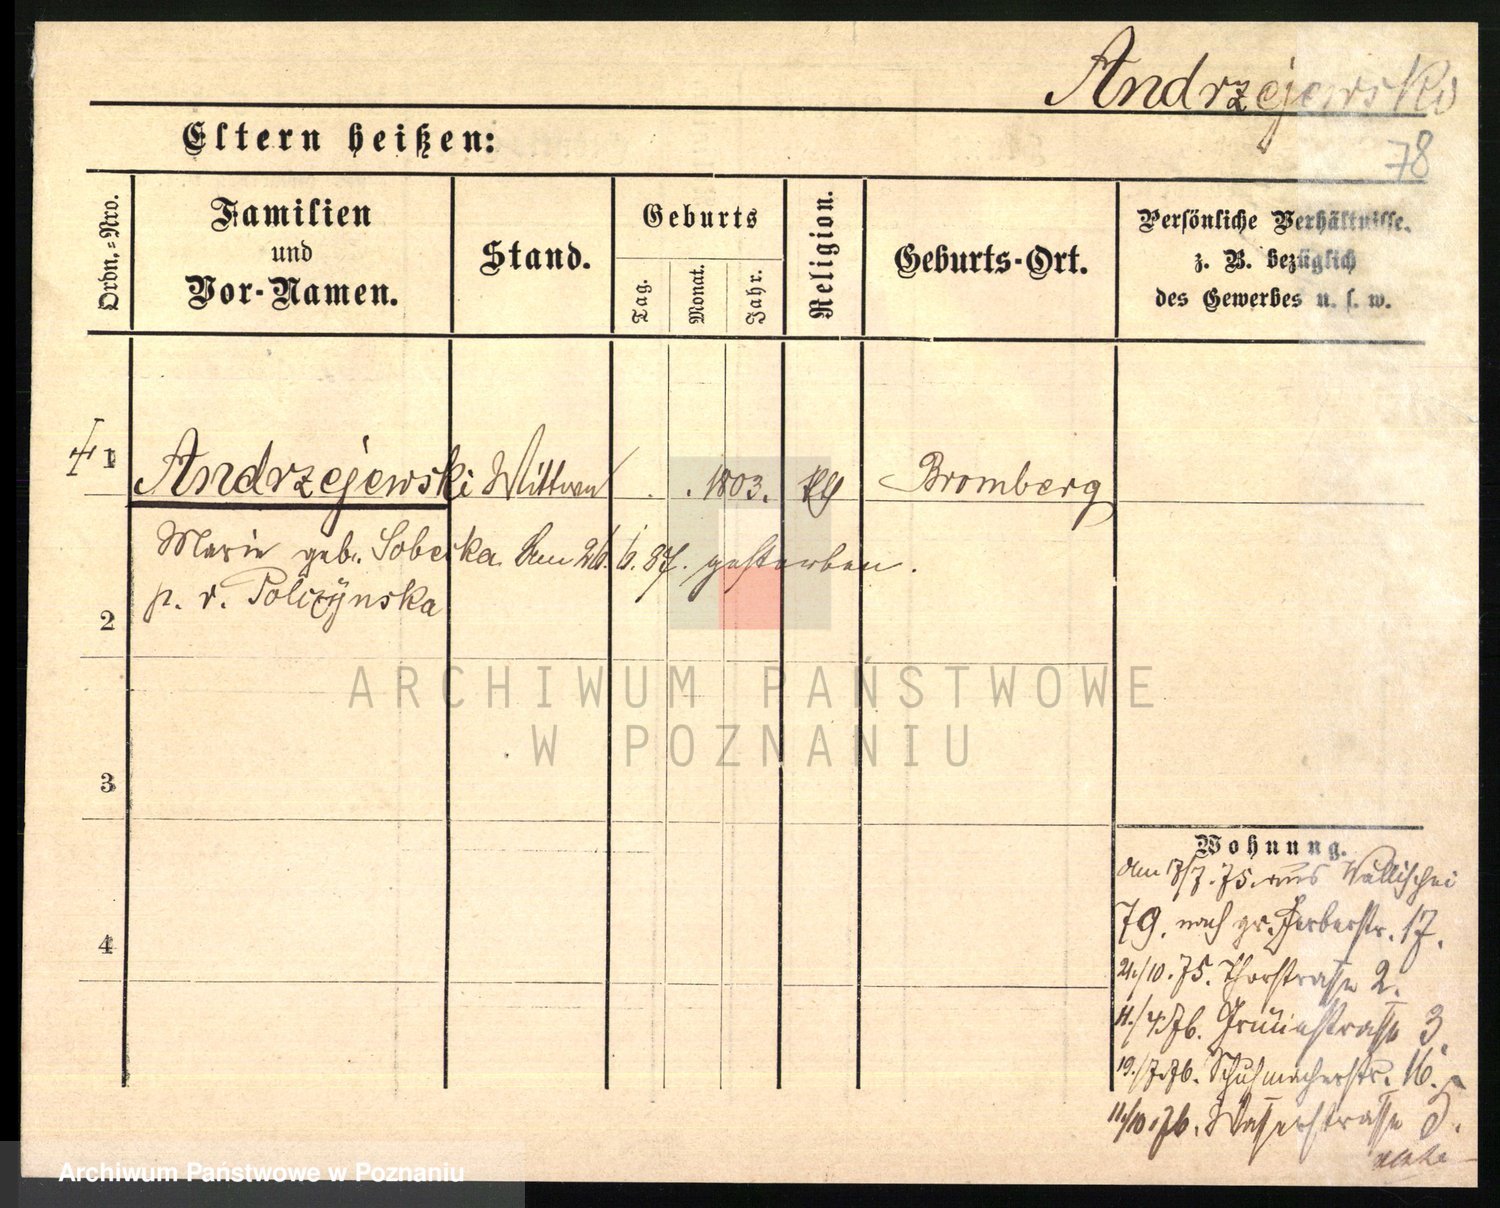 Andrzejewski
78
Eltern heißen:
Ordn.=Nro.
Familien
und
Vor-Namen.
Stand.
Geburts
Tag.
Monat.
Jahr.
Religion.
Geburts-Ort.
Persönliche Verhältnisse.
z. B. bezüglich
des Gewerbes u. s. w.
1 Andrzejewski Wittwe 1803. Bromberg
Marie geb. Soberka. den 26. 6. 87. gestorben.
p. v. Policzÿnska
2
ARCHIWUM PAŃSTWOWE
W POZNANIU
3
4
Wohnung.
den 75. aus Wallischei
79. nach gr. Gerberstr. 17.
21/10. 75. Thorstrasse 2.
11./4. 76. Grünestrasse 3.
19./7. 76. Schuhmacherstr. 16.
11/10. 76. Wasserstrasse 5.
Archiwum Państwowe w Poznaniu